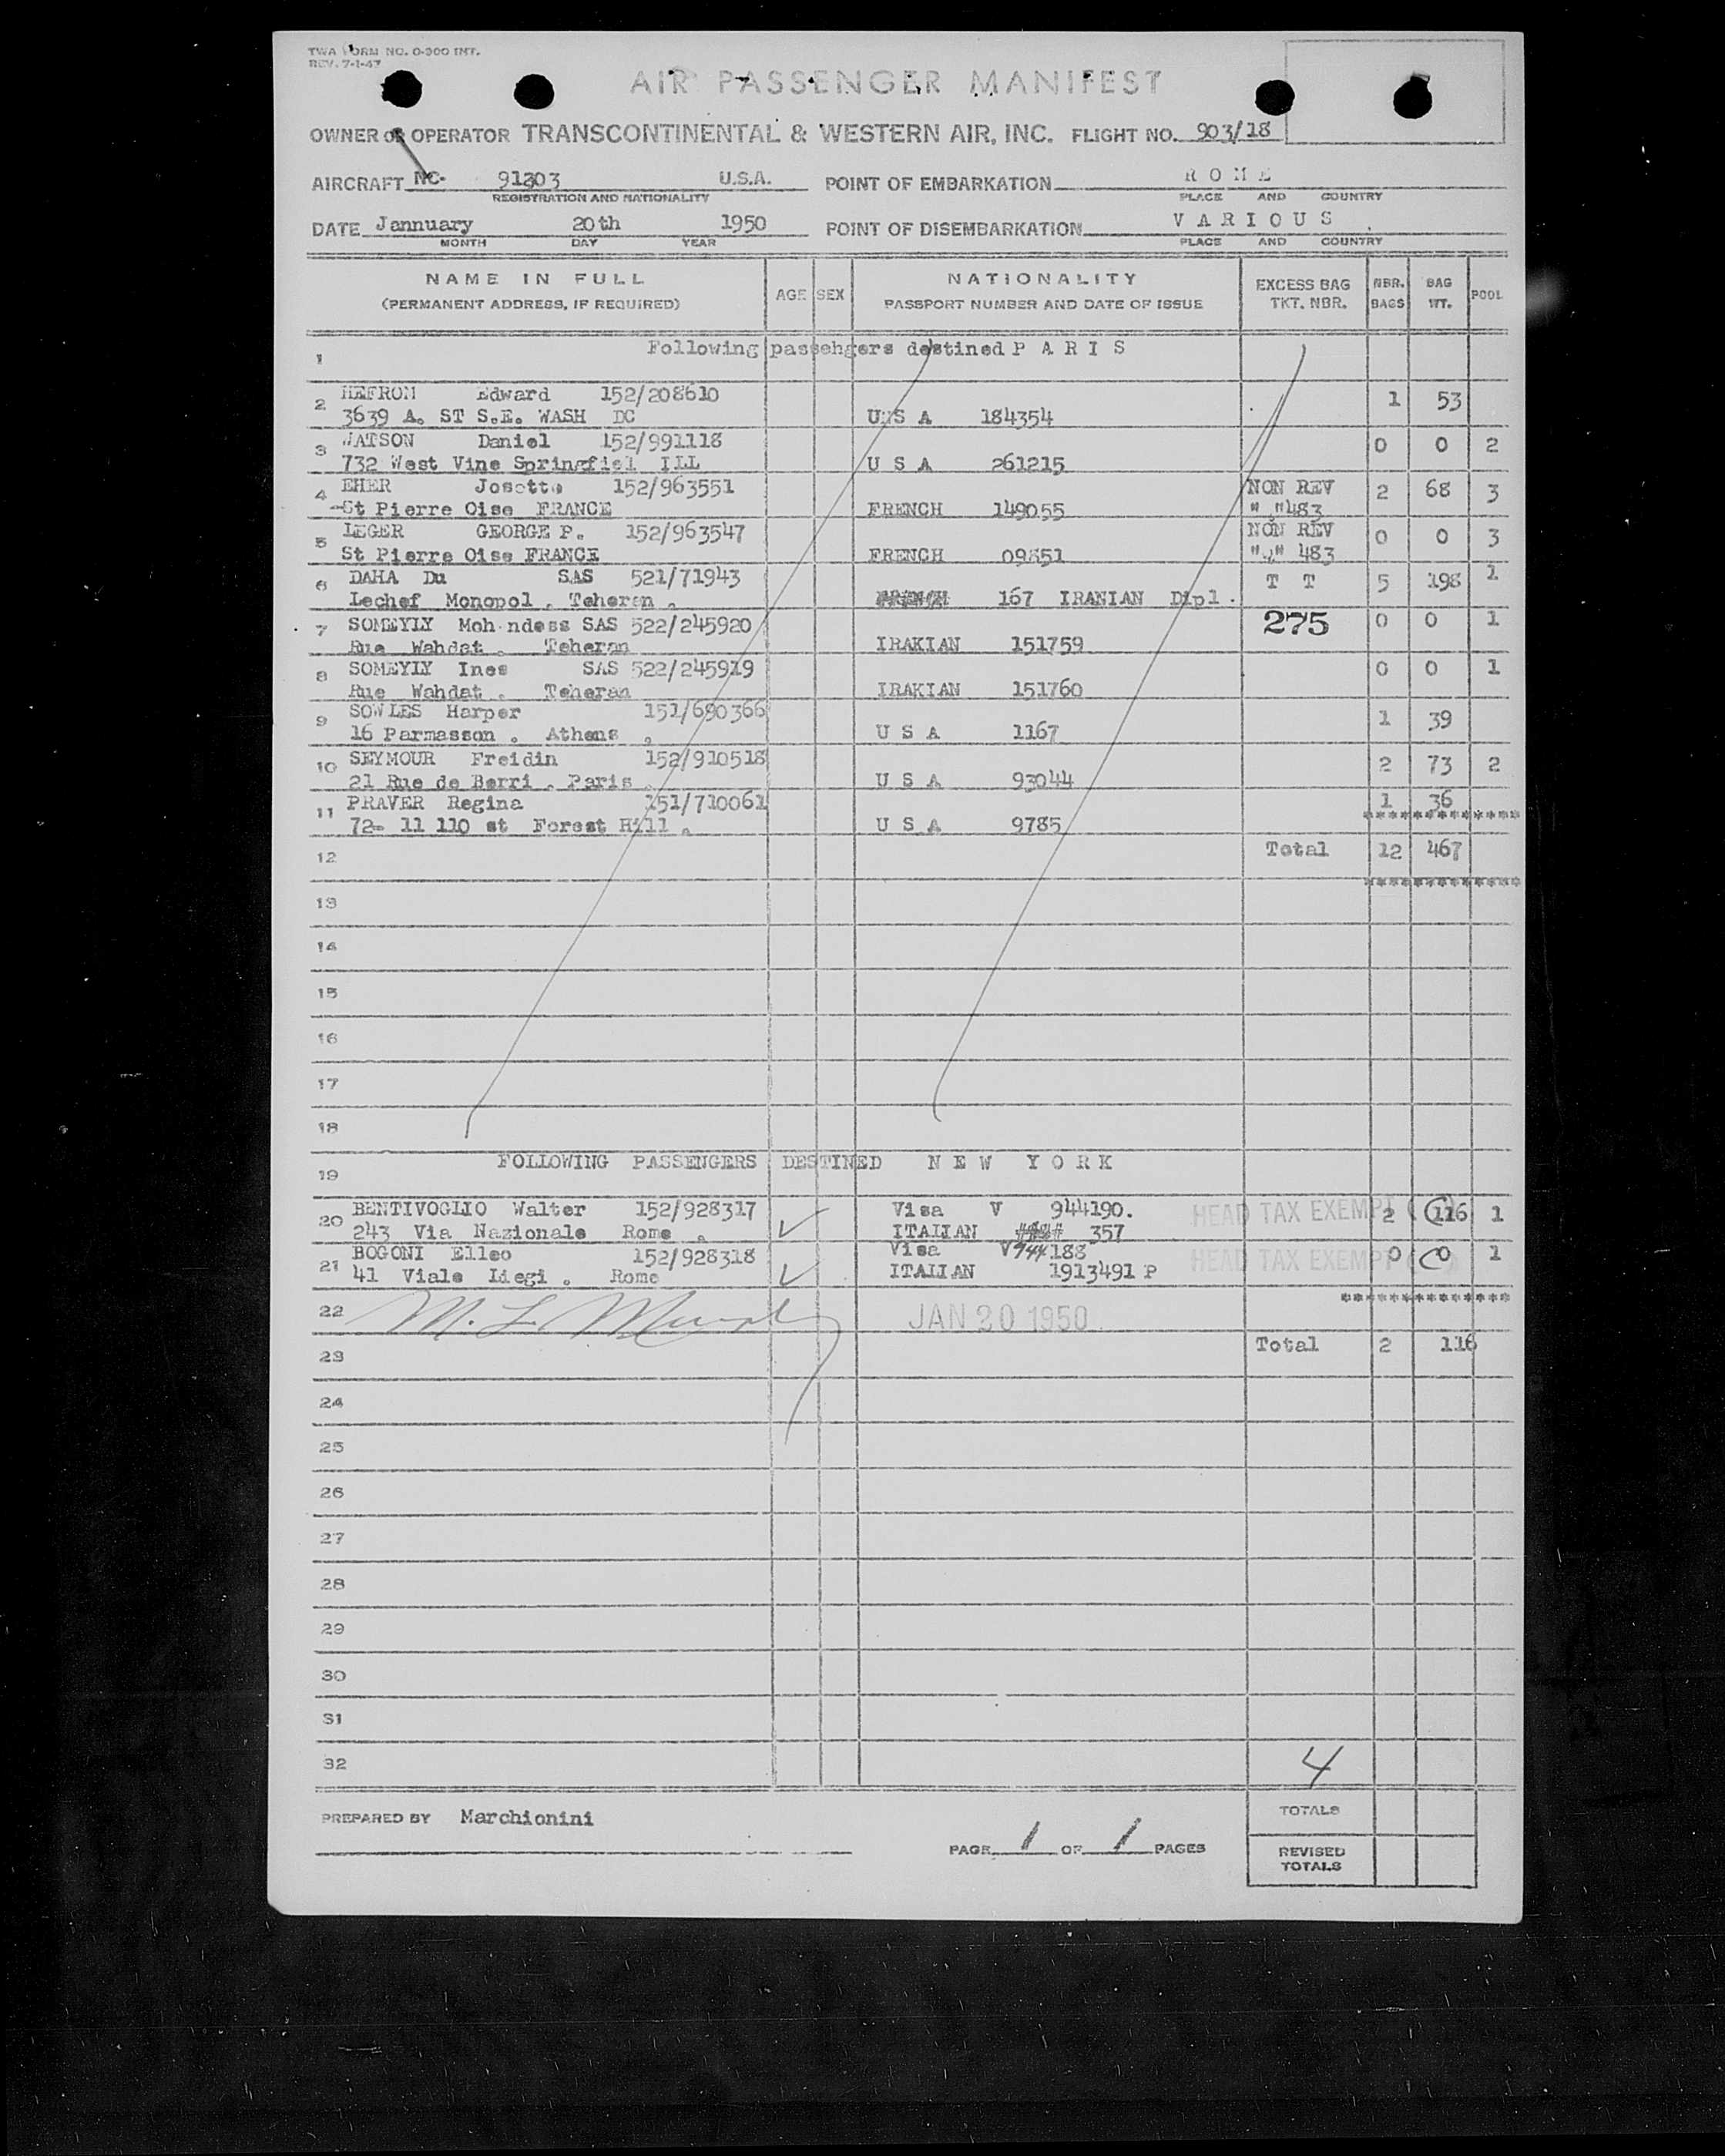 TWA FORM NO. O-300 INT.
REV. 7-1-47
AIR PASSENGER MANIFEST
OWNER OR OPERATOR TRANSCONTINENTAL & WESTERN AIR, INC. FLIGHT NO. 903/18
AIRCRAFT NC- 91203 U.S.A. POINT OF EMBARKATION R O M E
REGISTRATION AND NATIONALITY PLACE AND COUNTRY
DATE Jannuary 20th 1950 POINT OF DISEMBARKATION V A R I O U S
MONTH DAY YEAR PLACE AND COUNTRY
NAME IN FULL AGE SEX NATIONALITY EXCESS BAG NBR. BAG POOL
(PERMANENT ADDRESS, IF REQUIRED) PASSPORT NUMBER AND DATE OF ISSUE TKT. NBR. BAGS WT.
1 Following passehgers destined P A R I S
2 HEFRON Edward 152/208610 1 53
3639 A. ST S.E. WASH DC U S A 184354
3 WATSON Daniel 152/991118 0 0 2
732 West Vine Springfiel ILL U S A 261215
4 EHER Josette 152/963551 NON REV 2 68 3
St Pierre Oise FRANCE FRENCH 149055 " "483
5 LEGER GEORGE P. 152/963547 NON REV 0 0 3
St Pierre Oise FRANCE FRENCH 09851 " " 483
6 DAHA Du SAS 521/71943 T T 5 198 1
Lechef Monopol . Teheran . 167 IRANIAN Dipl.
7 SOMEYLY Moh ndess SAS 522/245920 275 0 0 1
Rue Wahdat . Teheran IRAKIAN 151759
8 SOMEYLY Ines SAS 522/245919 0 0 1
Rue Wahdat . Teheran IRAKIAN 151760
9 SOWLES Harper 151/690366 1 39
16 Parmasson . Athens . U S A 1167
10 SEYMOUR Freidin 152/910518 2 73 2
21 Rue de Berri . Paris . U S A 93044
11 PRAVER Regina 151/710061 1 36
72- 11 110 st Forest Hill . U S A 9785 ************
12 Total 12 467
************
13
14
15
16
17
18
19 FOLLOWING PASSENGERS DESTINED N E W Y O R K
20 BENTIVOGLIO Walter 152/928317 Visa V 944190. HEAD TAX EXEMPT 2 116 1
243 Via Nazionale Rome . ITALIAN 357
21 BOGONI Elleo 152/928318 Visa V 944188 HEAD TAX EXEMPT 0 0 1
41 Viale Liegi . Rome ITALIAN 1913491 P
*************
22 M. L. JAN 20 1950
23 Total 2 116
24
25
26
27
28
29
30
31
32 4
PREPARED BY Marchionini TOTALS
PAGE 1 OF 1 PAGES REVISED
TOTALS